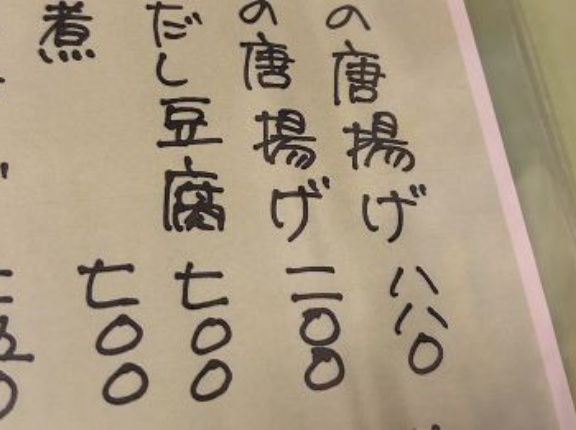 の唐揚げ 八八〇
の唐揚げ 一一〇〇
だし豆腐 七〇〇
煮 七〇〇